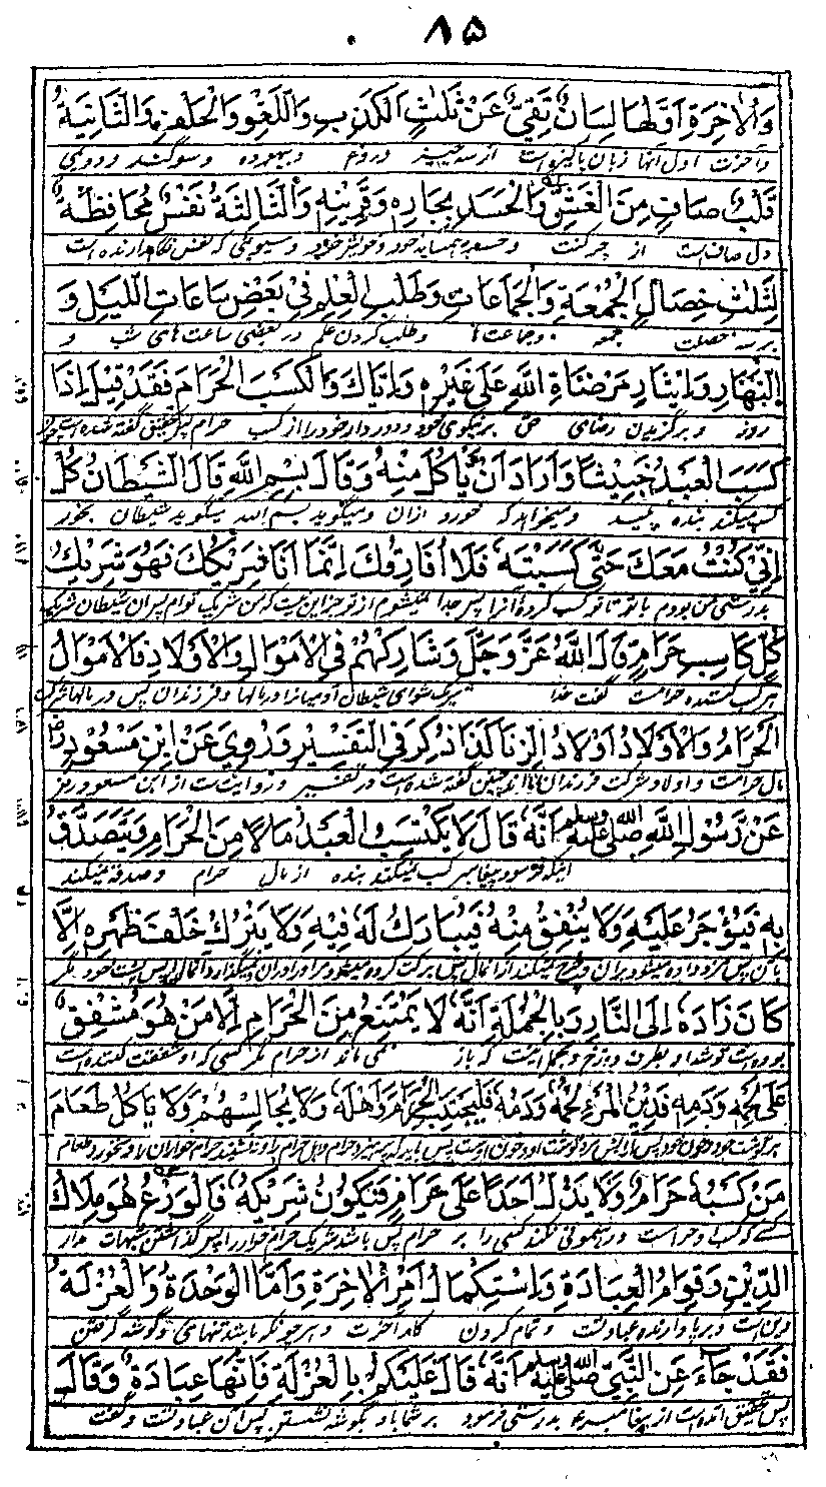 ٨۵
وَالْاٰخِرَةِ اَوَّلُهَا لِسَانٌ نَقِيٌّ عَنْ ثَلٰثٍ الْكَذِبِ وَاللَّغْوِ وَالْحَلْفِ وَالثَّانِيَةُ
وآخرت اول آنها زبان پاکیزه است از سه چیز دروغ و بیهوده و سوگند و دویمی
قَلْبٌ صَافٍ مِنَ الْغَشِّ وَالْحَسَدِ بِجَارِهِ وَقَرِيْنِهِ وَالثَّالِثَةُ نَفْسٌ مُحَافِظَةٌ
دل صاف است از و حسد به همسایه خود و خویش خود و سیویمی که نفس نگاهدارنده است
لِثَلٰثِ خِصَالٍ الْجُمُعَةِ وَالْجَمَاعَاتِ وَطَلَبِ الْعِلْمِ فِيْ بَعْضِ سَاعَاتِ اللَّيْلِ وَ
بر سه خصلت جمعه و جماعت ها و طلب کردن علم در بعضی ساعت های شب و
النَّهَارِ وَاِيْثَارِ مَرْضَاةِ اللّٰهِ عَلٰى غَيْرِهِ وَاِيَّاكَ وَالْكَسْبَ الْحَرَامَ فَقَدْ قِيْلَ اِذَا
روز و برگزیدن رضای حق بر نیکوی خود و دور دار خود را از کسب حرام پس تحقیق گفته شده است
كَسَبَ الْعَبْدُ خَبِيْثًا وَاَرَادَ اَنْ يَأْكُلَ مِنْهُ وَقَالَ بِسْمِ اللّٰهِ قَالَ الشَّيْطَانُ كُلْ
کسب میکند بنده پلید و میخواهد که خورد ازان و میگوید بسم الله میگوید شیطان بخور
اِنِّيْ كُنْتُ مَعَكَ حَتّٰى كَسَبْتَهُ فَلَا اُفَارِقُكَ اِنَّمَا اَنَا شَرِيْكُكَ فَهُوَ شَرِيْكُ
بدرستی من بودم با تو تا تو کسب کرده آنرا پس جدا نمیشوم از تو جز این نیست که من شریک توام پس آن شیطان شریک
كُلِّ كَاسِبِ حَرَامٍ قَالَ اللّٰهُ عَزَّ وَجَلَّ وَشَارِكْهُمْ فِي الْاَمْوَالِ وَالْاَوْلَادِ فَالْاَمْوَالُ
هر کسب کننده حرامست گفت خدا شریک شو ای شیطان آدمیانرا در مالها و فرزندان پس در مالها شرکت
الْحَرَامُ وَالْاَوْلَادُ اَوْلَادُ الزِّنَا كَذَا ذُكِرَ فِي التَّفْسِيْرِ وَرُوِيَ عَنْ اِبْنِ مَسْعُوْدٍ رض
مال حرامست و اولاد شرکت فرزندان زنا اند چنین گفته شده است در تفسیر و روایتست از ابن مسعود رض
عَنْ رَسُوْلِ اللّٰهِ صلى الله عليه وسلم اَنَّهُ قَالَ لَا يَكْتَسِبُ الْعَبْدُ مَالًا مِنَ الْحَرَامِ فَيَتَصَدَّقُ
اینکه فرمود پیغامبر کسب نمیکند بنده از مال حرام و صدقه میکند
بِهِ فَيُؤْجَرُ عَلَيْهِ وَلَا يُنْفِقُ مِنْهُ فَيُبَارَكُ لَهُ فِيْهِ وَلَا يَتْرُكُ خَلْفَ ظَهْرِهِ اِلَّا
بآن پس مزد داده میشود بران و خرج نمیکند از آنمال پس برکت کرده میشود مر او را دران و نمیگذارد آنمال را پس پشت خود مگر
كَانَ زَادَهُ اِلَى النَّارِ وَبِالْجُمْلَةِ اَنَّهُ لَا يَمْتَنِعُ مِنَ الْحَرَامِ اِلَّا مَنْ هُوَ مُشْفِقٌ
بوده است توشه او بطرف دوزخ و بجمله اینست که باز نمی ماند از حرام مگر کسی که او شفقت کننده است
عَلٰى لَحْمِهِ وَدَمِهِ فَدِيْنُ الْمَرْءِ لَحْمُهُ وَدَمُهُ فَلْيَجْتَنِبِ الْحَرَامَ وَاَهْلَهُ وَلَا يُجَالِسْهُمْ وَلَا يَأْكُلْ طَعَامَ
بر گوشت خود و خون خود پس دین مرد گوشت او و خون اوست پس باید که پرهیزد حرام و اهل حرام را و نه نشیند حرام خواران را و نخورد طعام
مَنْ كَسْبُهُ حَرَامٌ وَلَا يَدُلُّ اَحَدًا عَلٰى حَرَامٍ فَيَكُوْنُ شَرِيْكَهُ فَالْوَرَعُ هُوَ مِلَاكُ
کسی که کسب او حرام است و رهنمونی نکند کسی را بر حرام پس باشد شریک حرام خوار را پس گذاشتن شبهات مدار
الدِّيْنِ وَقِوَامُ الْعِبَادَةِ وَاسْتِكْمَالُ اَمْرِ الْاٰخِرَةِ وَاَمَّا الْوَحْدَةُ وَالْعُزْلَةُ
دین است و برپا دارنده عبادتست و تمام کردن کار آخرت و هر چونکه باشد تنهامی و گوشه گرفتن
فَقَدْ جَاءَ عَنِ النَّبِيِّ صلى الله عليه وسلم اَنَّهُ قَالَ عَلَيْكُمْ بِالْعُزْلَةِ فَاِنَّهَا عِبَادَةٌ وَقَالَ
پس تحقیق آمده است از پیغامبر بدرستی فرمود بر شما باد بگوشه نشستن پس آن عبادتست و گفت